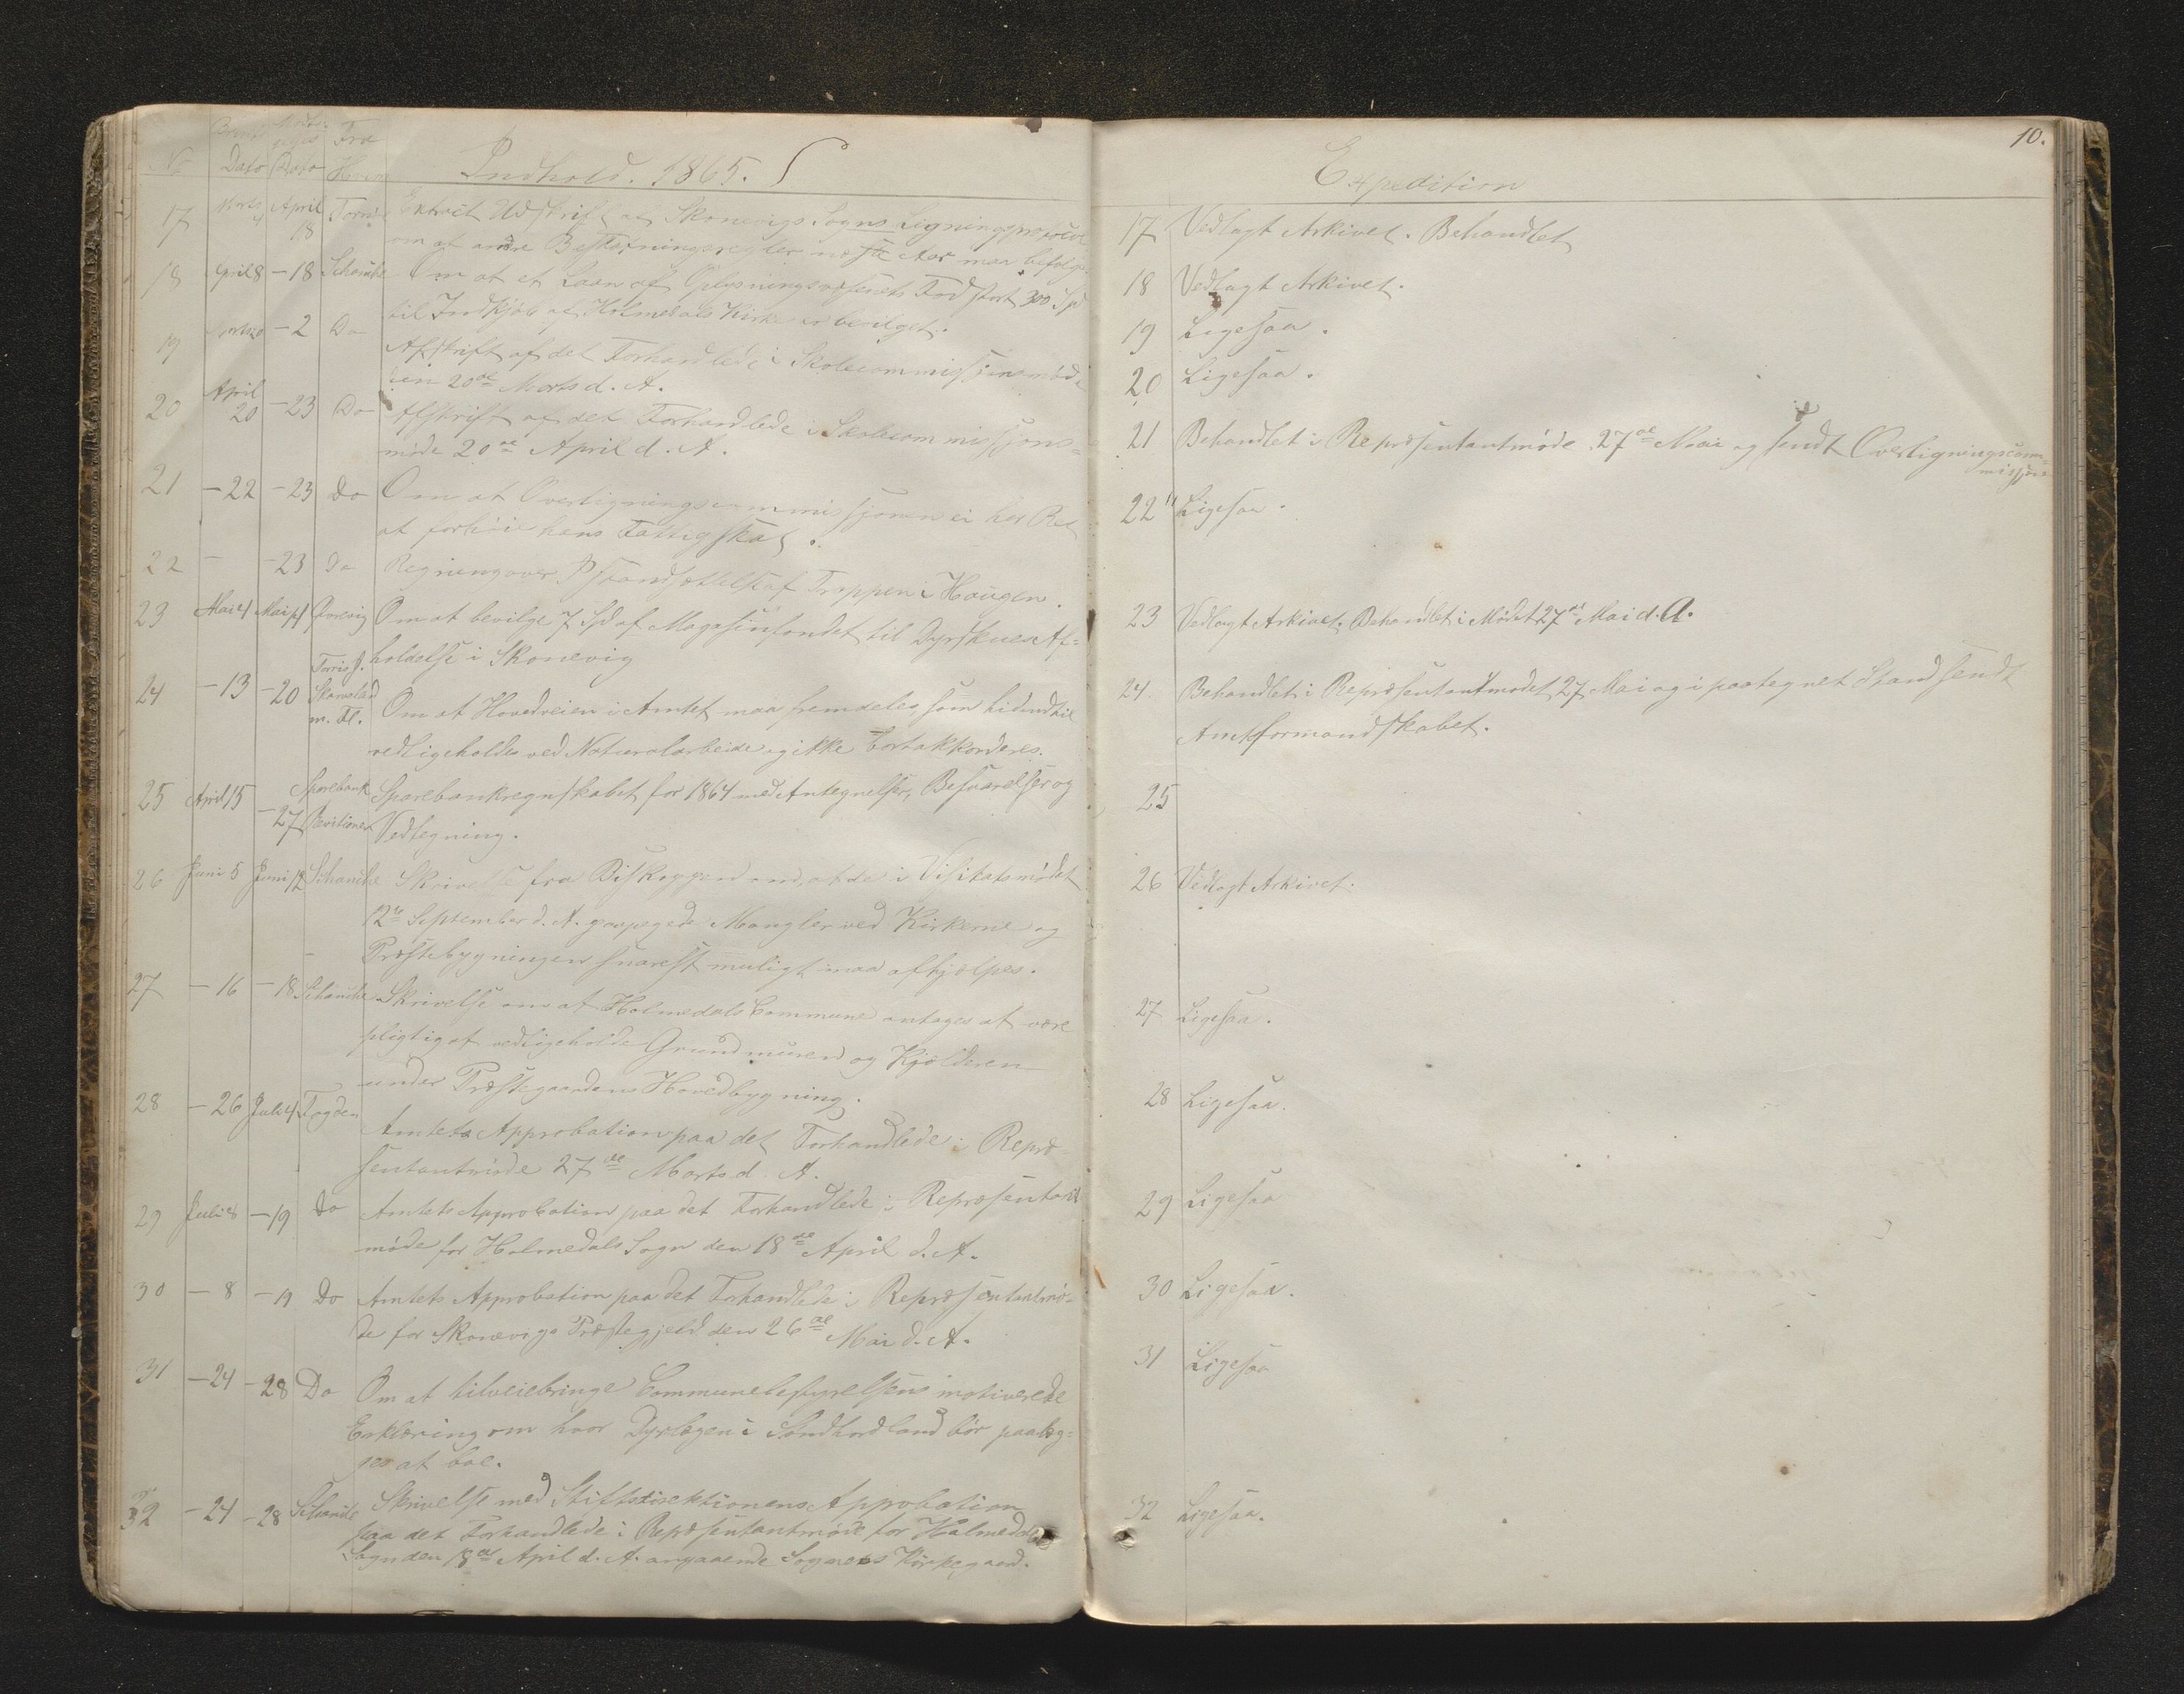 No Brevets Dato Modta- gelses Dato Fra Hvem Indhold. 1865.
17 Marts 4 April 18 Extract Udskrift af Skonevigs Sogns Ligningsprotocol
om at andre Beskatningsregler næste Aar maa befølges
18 April 8 - 18 Schanche Om at et Laan af Oplysningsvæsenets Fond stort 300 Spd
til Indkjøb af Holmedals Kirke er bevilget.
19 - 2 Do Afskrift af det Forhandlede i Skolecommissionsmøde
den 20de Marts d. A.
20 April 20 - 23 Do Afskrift af det Forhandlede i Skolecommissjons=
møde 20de April d. A.
21 - 22 - 23 Do Om at Overligningscommissjonen ei har Ret
at forhøie hans Fattigskat.
22 - - 23 Do Regning over Istandsættelse af Trappen i Haugen.
23 Mai 4 Mai 14 Om at bevilge 7 Spd af Magasinfondet til Dyrskues Af=
holdelse i Skonevig
24 - 13 - 20 Torris J. Skarveland m. Fl. Om at Hovedveien i Amtet maa fremdeles som hidindtil
vedligeholdes ved Naturalarbeide og ikke bortakkorderes.
25 April 15 - 27 Sparebank Revisionen Sparebankregnskabet for 1864 med Antegnelser, Besvarelser og
Vedtegning.
26 Juni 5 Juni 12 Schanche Skrivelse fra Biskoppen om at de i Visitatsmødet
12te September d. A. paapegede Mangler ved Kirkerne og
Præstebygningen snarest muligt maa afhjælpes.
27 - 16 - 18 Schanche Skrivelse om at Holmedals Commune antages at være
pligtig at vedligeholde Grundmuren og Kjølderen
under Præstegaardens Hovedbygning.
28 - 26 Juli 4 Fogden Amtets Approbation paa det Forhandlede i Repræ-
sentantmøde 27de Marts d. A.
29 Juli 8 - 19 Do Amtets Approbation paa det Forhandlede i Repræsentant
møde for Holmedals Sogn den 18de April d. A.
30 - 8 - 19 Do Amtets Approbation paa det Forhandlede i Repræsentantmø-
de for Skonevigs Præstegjeld den 26de Mai d. A.
31 - 24 - 28 Do Om at tilveiebringe Communebestyrelsens motiverede
Erklæring om hvor Dyrlægen i Søndhordland bør paalæg=
ges at boe.
32 - 24 - 28 Schanche Skrivelse med Stiftsdirektionens Approbation
paa det Forhandlede i Repræsentantmøde for Holmedals
Sogn den 18de April d. A. angaaende Sognets Kirkegaard.
10.
Expedition
17 Vedlagt Arkivet. Behandlet
18 Vedlagt Arkivet.
19 Ligesaa.
20 Ligesaa.
21 Behandlet i Repræsentantmøde 27de Mai og sendt Overligningscom=
missjonen
22 Ligesaa.
23 Vedlagt Arkivet. Behandlet i Mødet 27de Mai d. A.
24. Behandlet i Repræsentantmødet 27 Mai og i paategnet Stand sendt
Amtsformandskabet.
25
26 Vedlagt Arkivet.
27 Ligesaa.
28 Ligesaa.
29 Ligesaa
30 Ligesaa.
31 Ligesaa
32 Ligesaa.